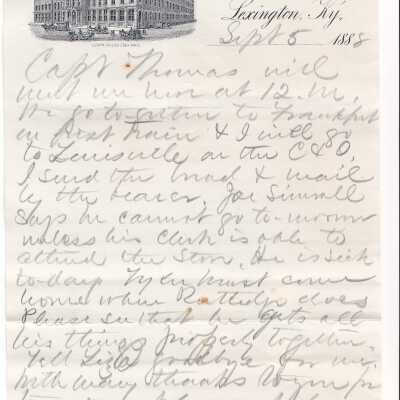 Lexington, Ky,
Sept 5 1888
Capt Thomas will
meet me here at 12. M.
We go together to Frankfort
on first train & I will go
to Louisville on the C&O,
I send the bread & mail
by the bearer, Joe
says he cannot go to-morrow
unless his Clerk is able to
attend the Store, He is sick
to-day Tyler must come
home when Rutledge does
Please see that he gets all
his things properly together.
Tell Liza goodbye for me.
With many thanks